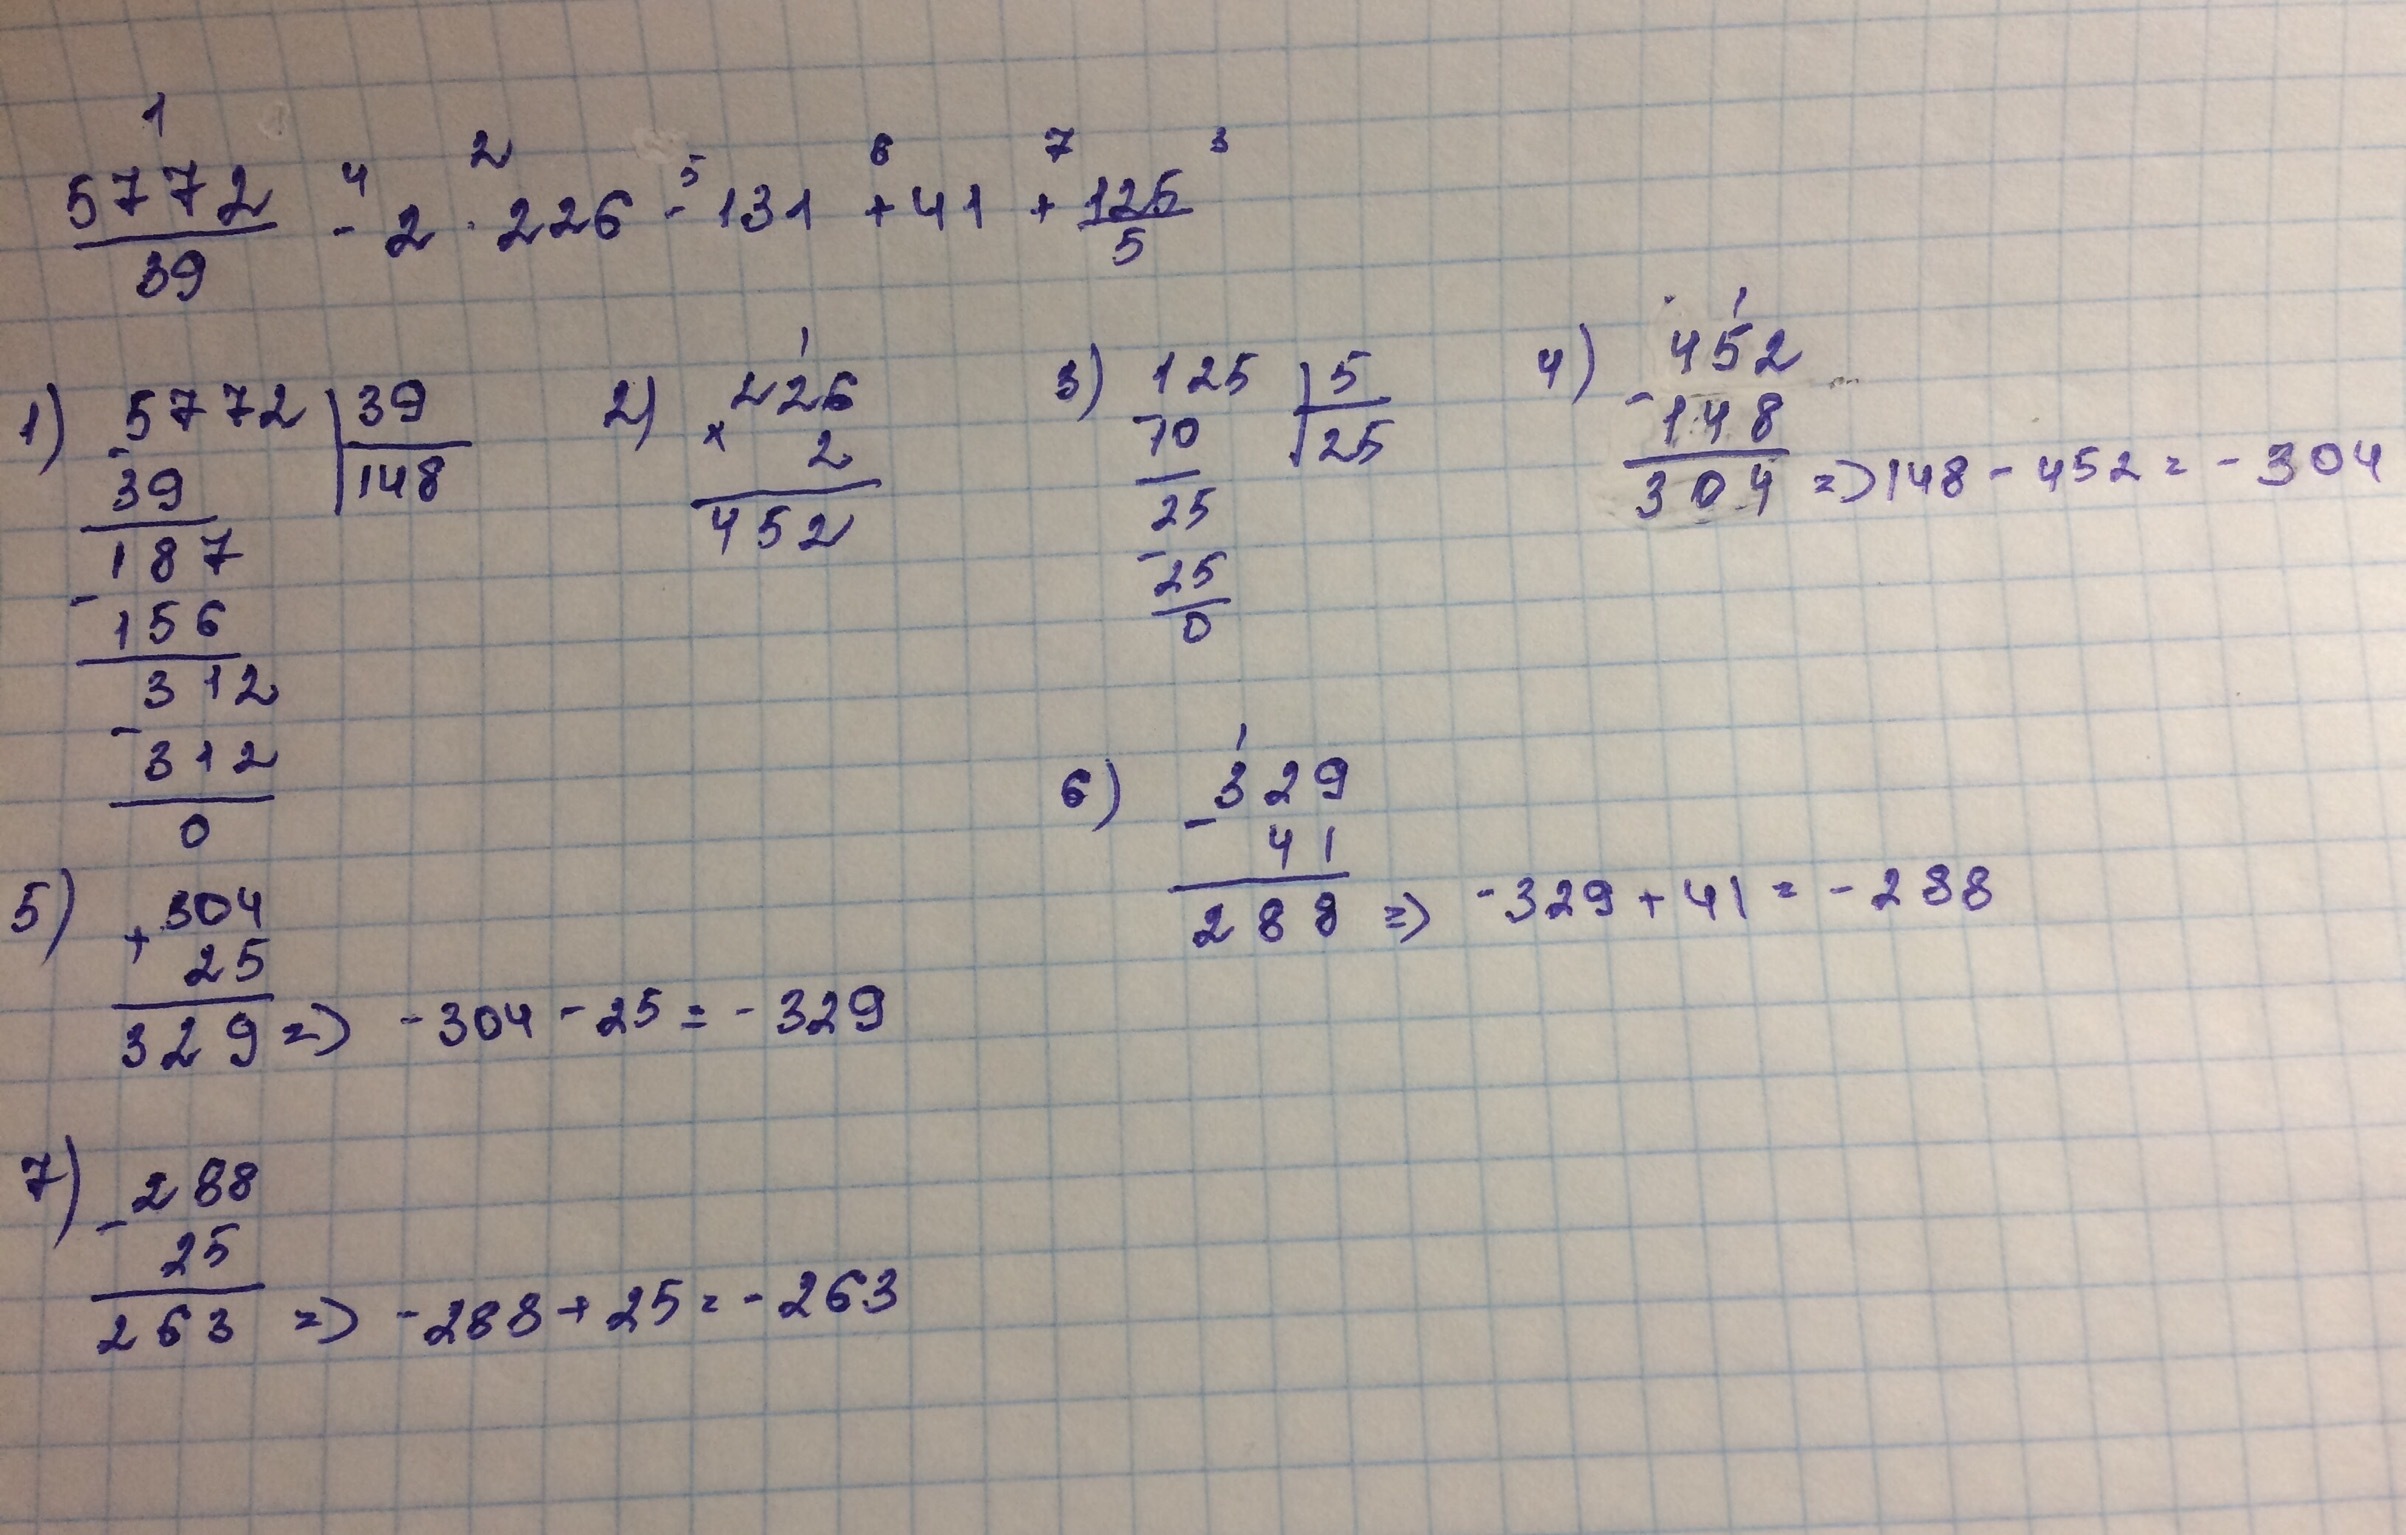 1 4 2 5 6 7 3
5772/39 - 2 · 226 - 131 + 41 + 125/5
1) 5772 | 39
- 39 | 148
187
- 156
312
- 312
0
2) 1
226
× 2
452
3) 125 | 5
- 10 | 25
25
- 25
0
4) 1
452
- 148
304 => 148 - 452 = - 304
5) 304
+ 25
329 => - 304 - 25 = - 329
6) 1
329
- 41
288 => - 329 + 41 = - 288
7) 288
- 25
263 => - 288 + 25 = - 263